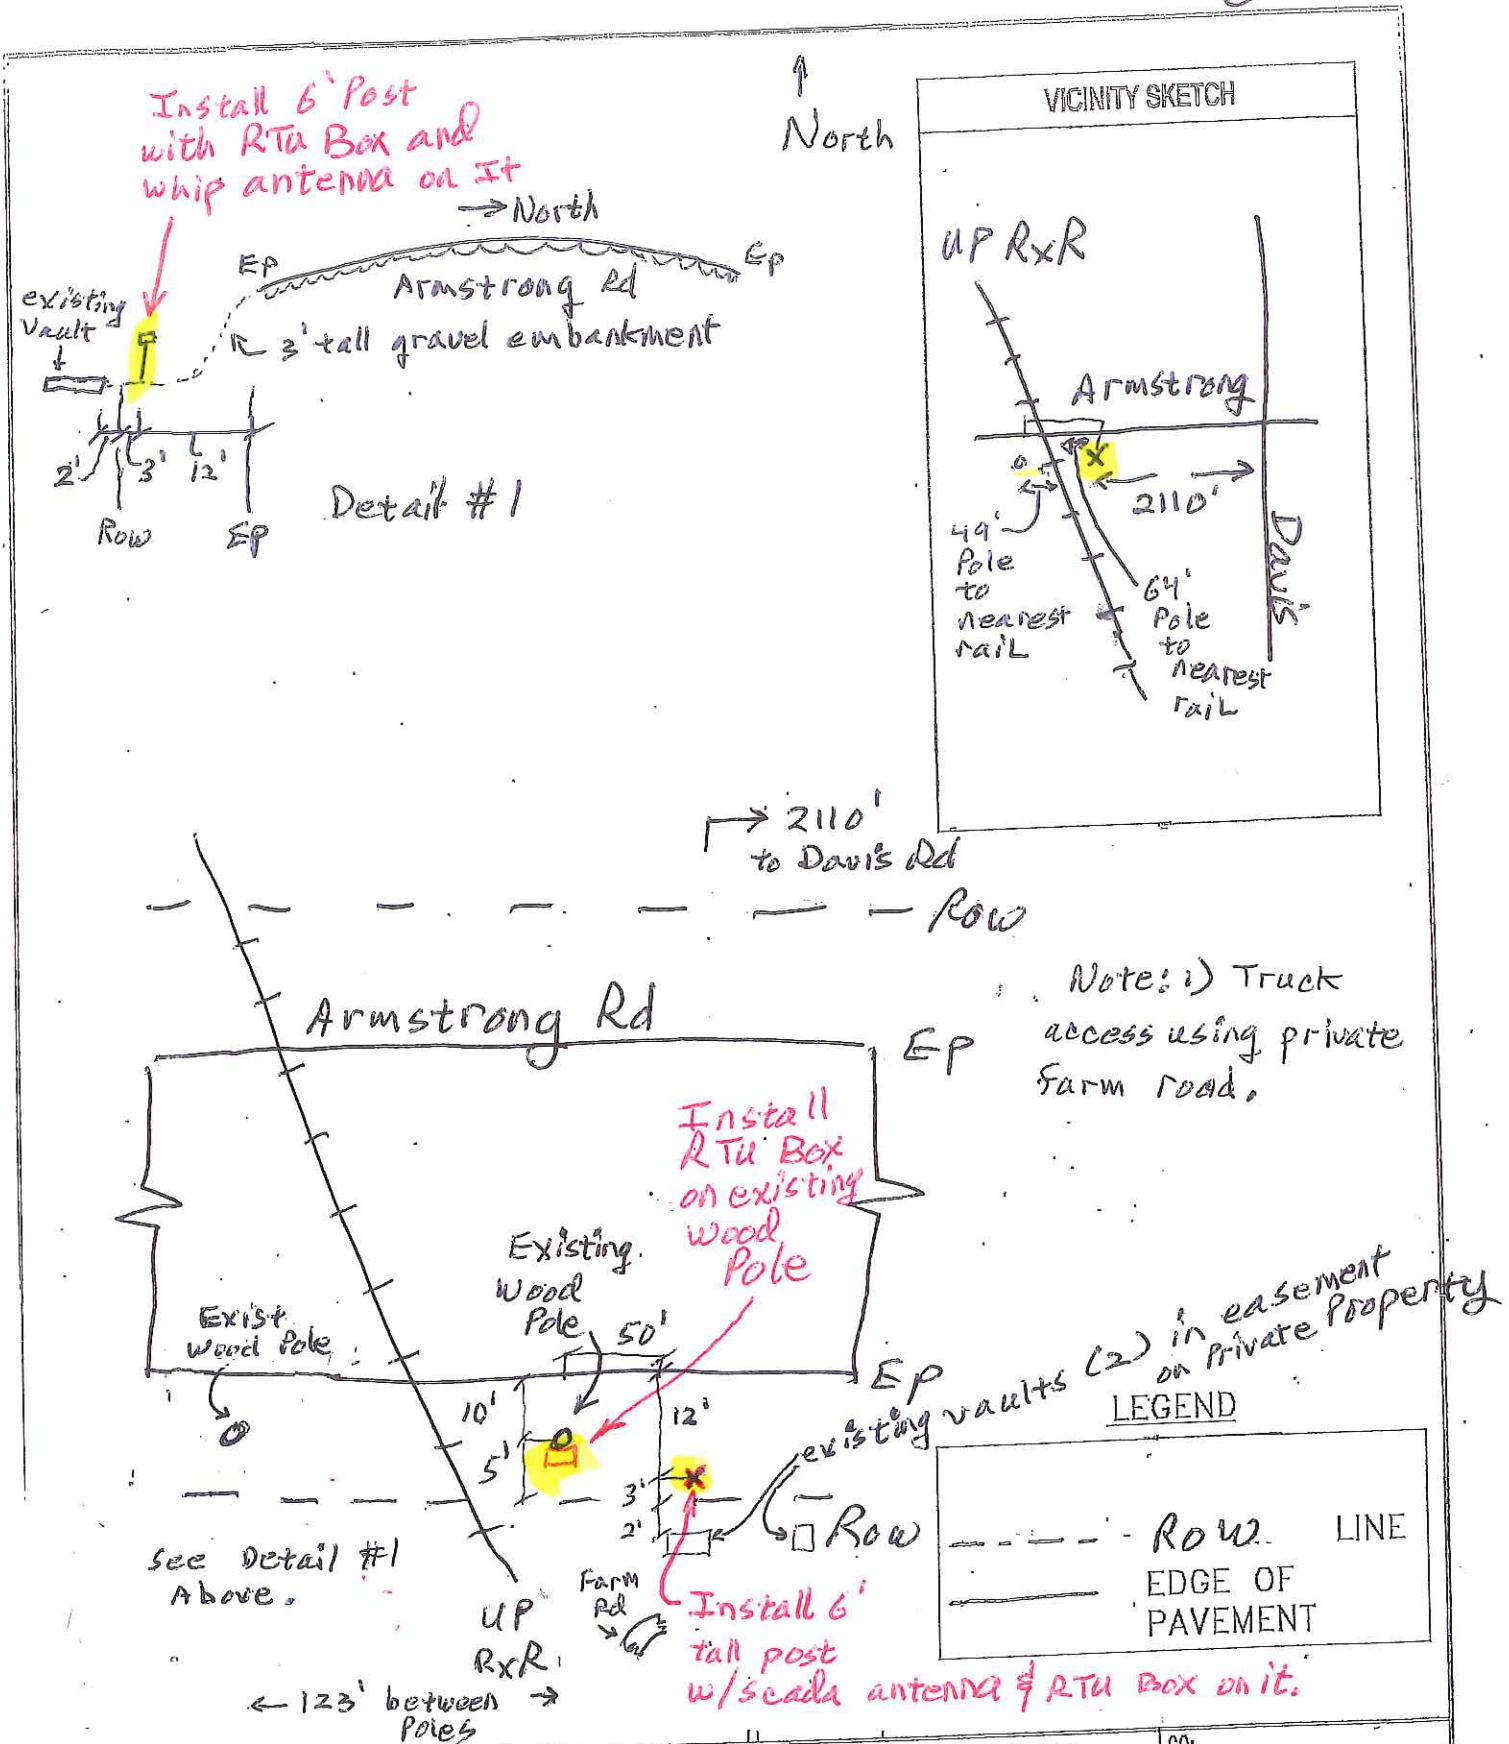 Install 6' Post
with RTU Box and
whip antenna on It
↑
North
VICINITY SKETCH
→ North
Ep
Ep
Armstrong Rd
existing
Vault
3' tall gravel embankment
2'
3'
12'
Row
Ep
Detail #1
UP RxR
Armstrong
2110'
Davis
49'
Pole
to
nearest
rail
64'
Pole
to
nearest
rail
→ 2110'
to Davis Rd
Row
Armstrong Rd
Ep
Note: 1) Truck
access using private
farm road.
Install
RTU Box
on existing
wood
Pole
Existing
Wood
Pole
50'
Exist.
Wood Pole
Ep
existing vaults (2) in easement
on Private Property
10'
5'
12'
3'
2'
Row
See Detail #1
Above.
UP
RxR
Farm
Rd
Install 6'
tall post
w/scada antenna & RTU Box on it.
← 123' between →
Poles
LEGEND
Row LINE
EDGE OF
PAVEMENT